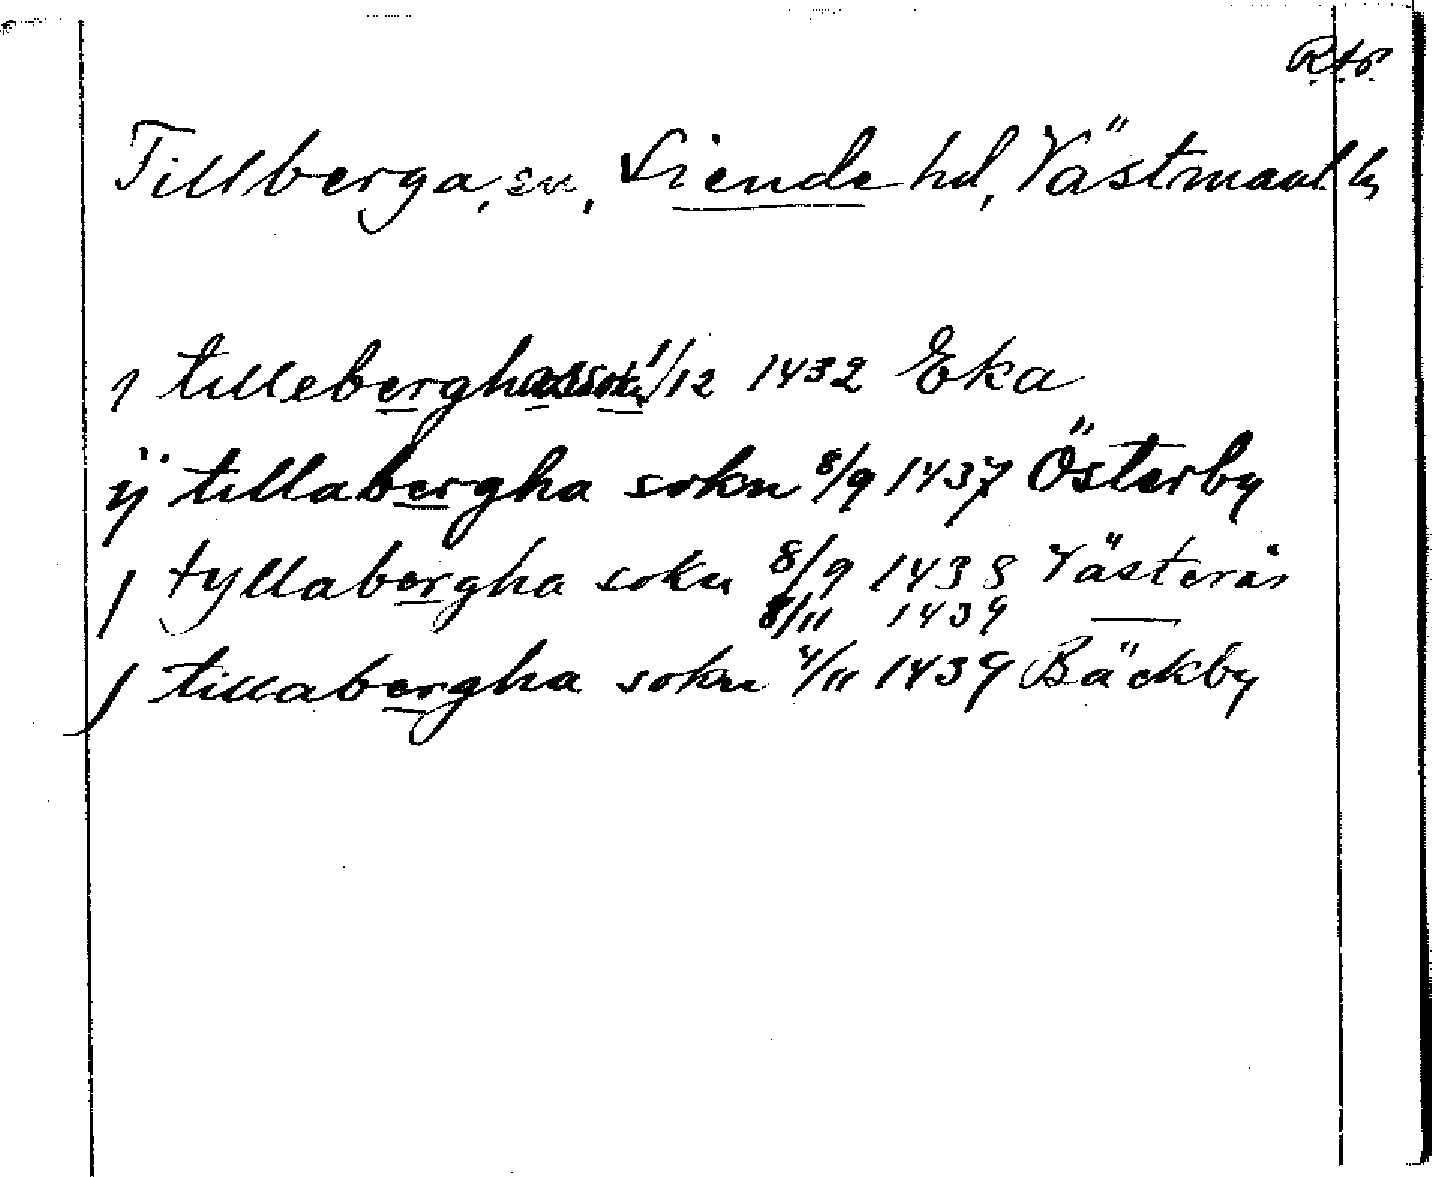 RAp.
Tillberga, sn, Siende hd, Västmanl. l.
j tilleberghassokn 1/12 1432 Eka
ij tillabergha sokn 8/9 1437 Österby
j tyllabergha sokn 8/9 1438 Västerås
8/11 1439 —
j tillabergha sokn 4/11 1439 Bäckby